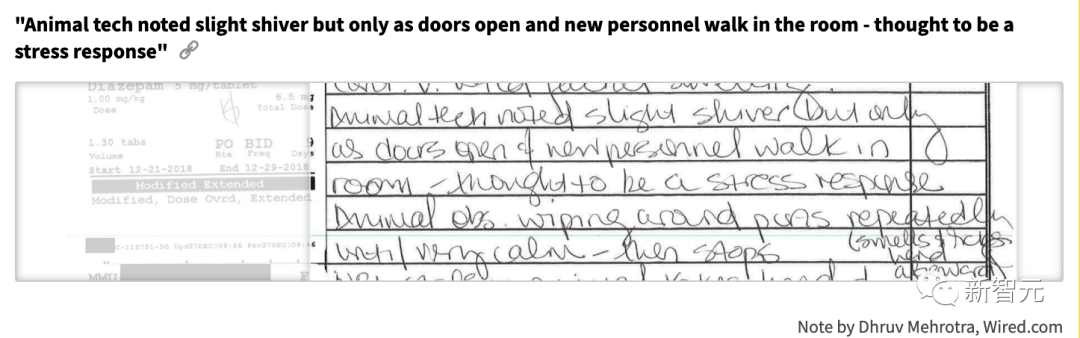 "Animal tech noted slight shiver but only as doors open and new personnel walk in the room - thought to be a
stress response"
Diazepam 5 mg/tablet
1.00 mg/kg 6.5 mg
Dose Total Dose
1.30 tabs PO BID 9
Volume Rte Freq Days
Start 12-21-2018 End 12-29-2018
Modified Extended
Modified, Dose Ovrd, Extended
Animal tech noted slight shiver (but only
as doors open & new personnel walk in
room - thought to be a stress response
Animal obs. wiping around purs repeatedly
until very calm - then stops
(smells & licks
hand
afterward)
新智元
Note by Dhruv Mehrotra, Wired.com